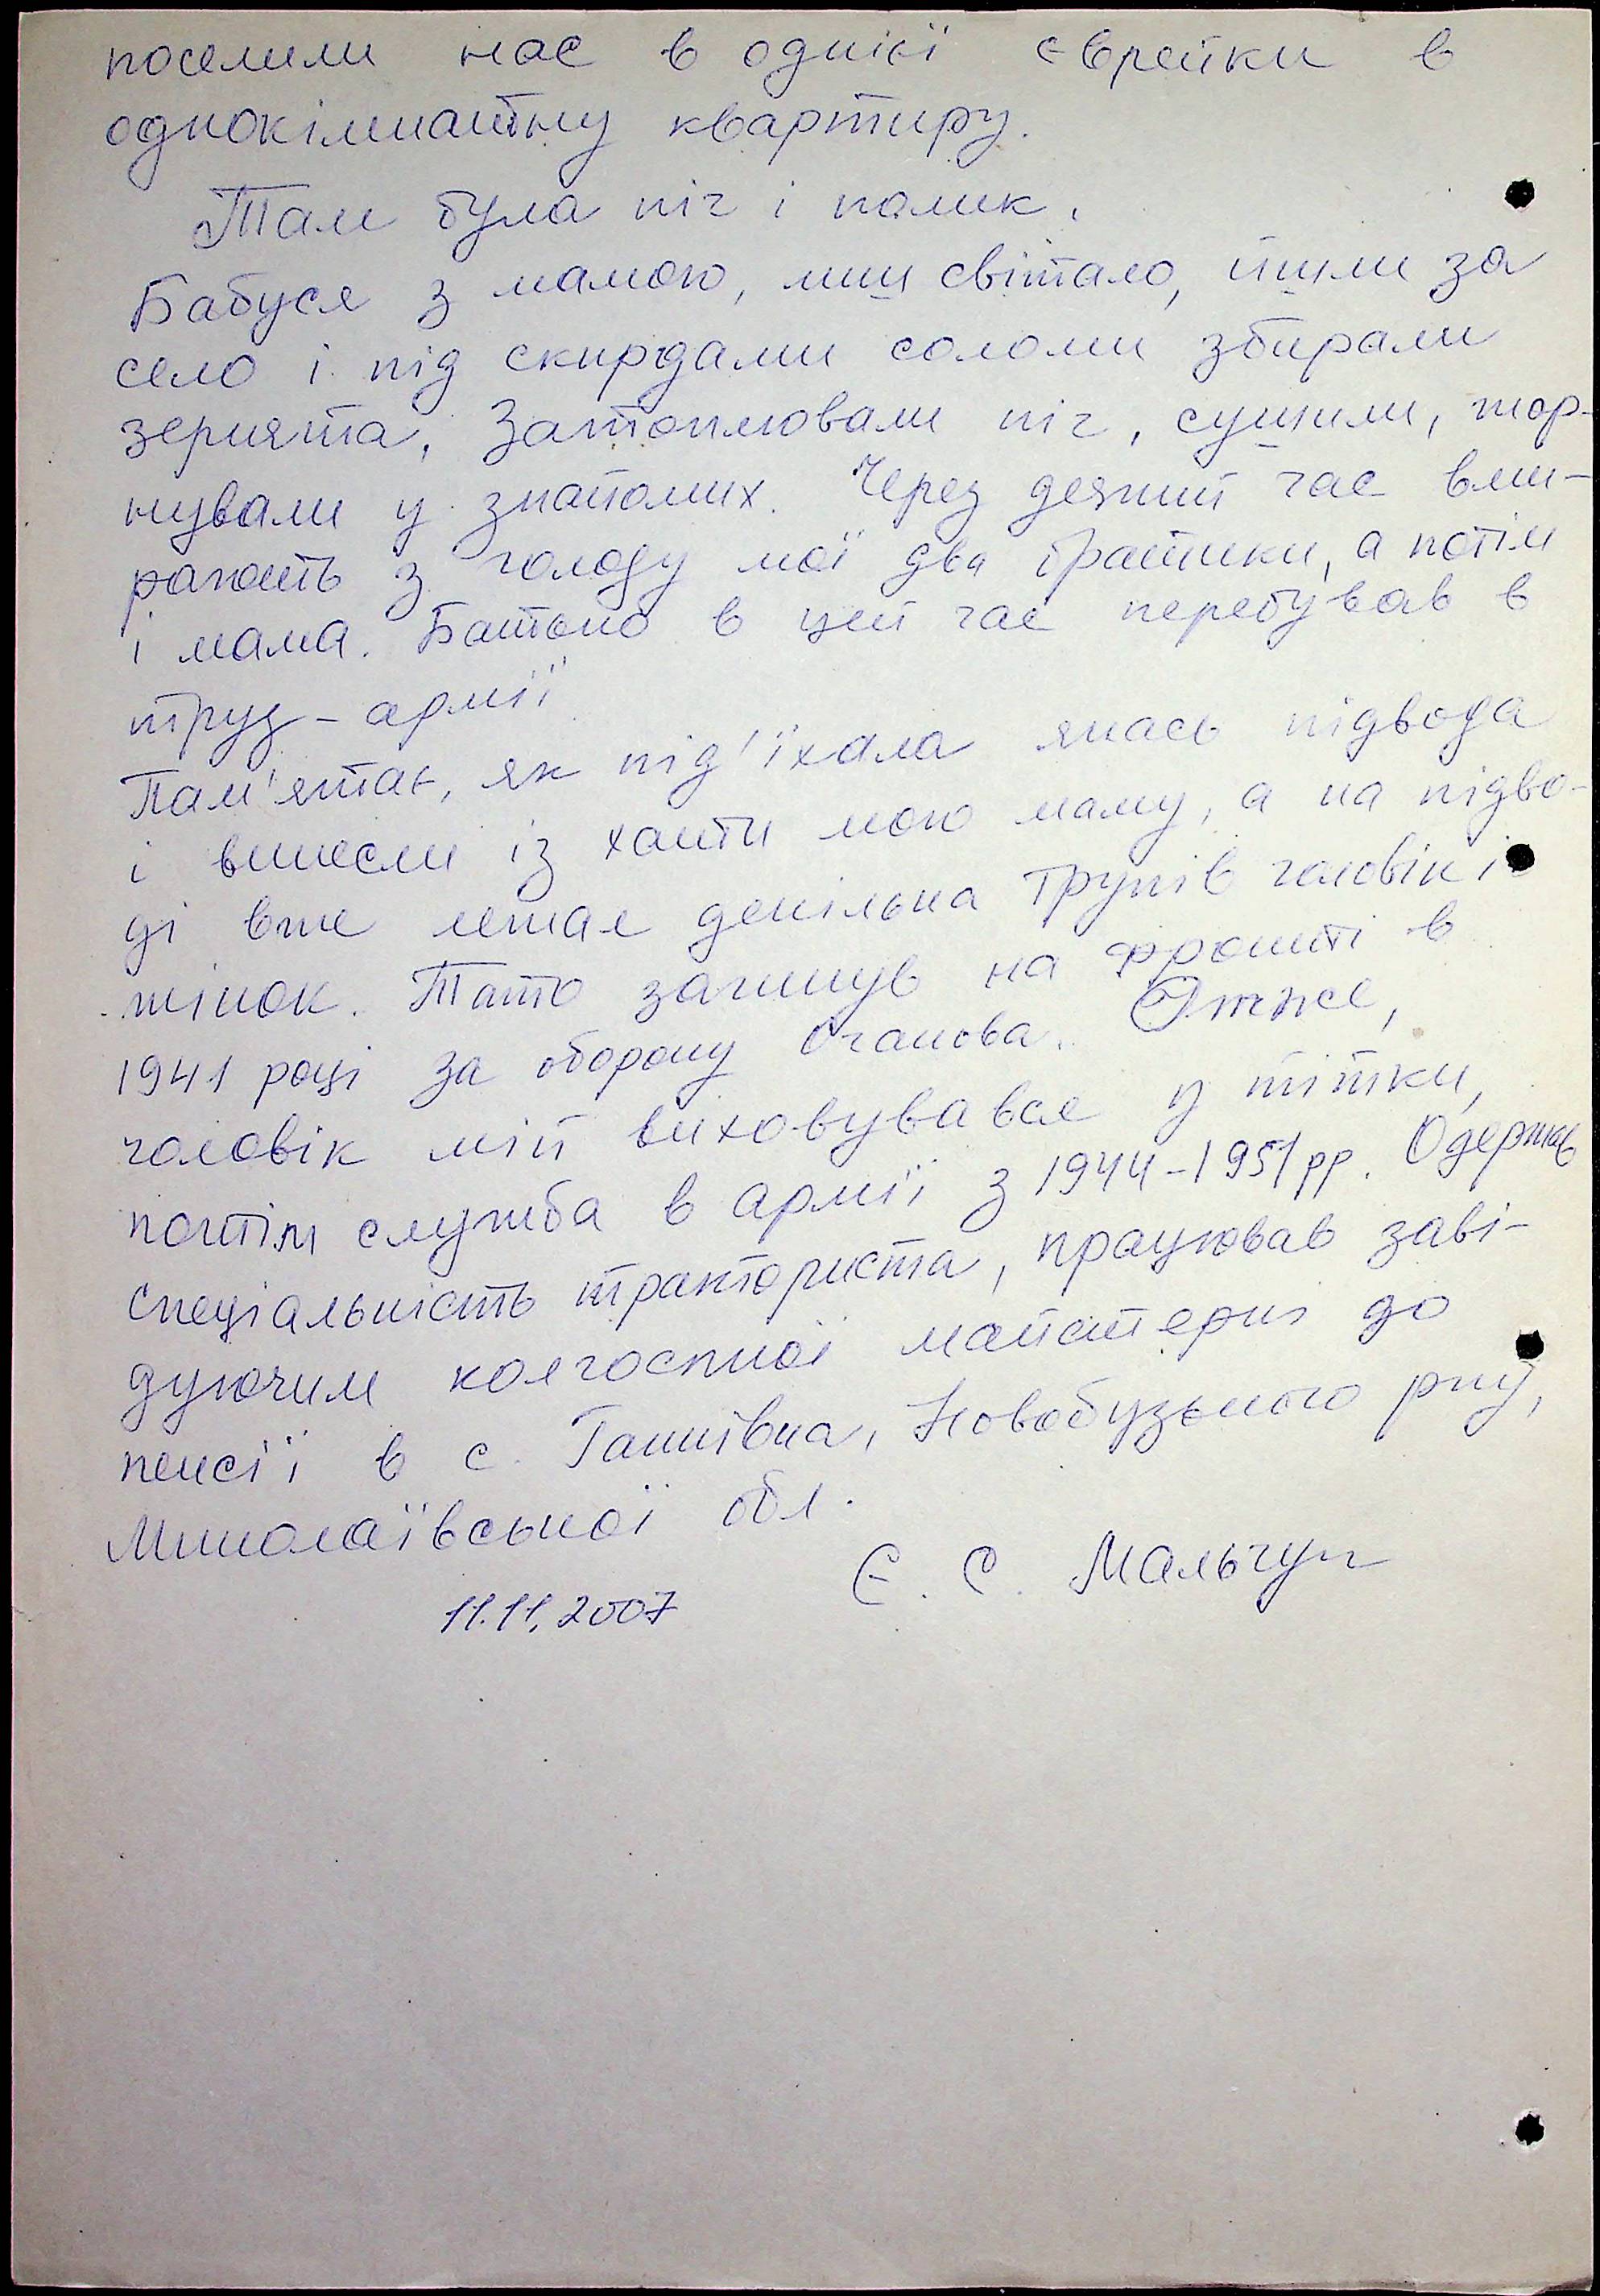 поселили нас в однієї єврейки в
однокімнатну квартиру.
Там була піч і полик.
Бабуся з мамою, лиш світало, йшли за
село і під скирдами соломи збирали
зернята. Затоплювали піч, сушили, жор-
нували у знайомих. Через деякий час вми-
рають з голоду мої два братики, а потім
і мама. Батько в цей час перебував в
труд-армії
Пам'ятає, як під'їхала якась підвода
і винесли із хати мою маму, а на підво-
ді вже лежал декілька трупів чоловік і
жінок. Тато загинув на фронті в
1941 році за оборону Очакова. Отже,
чоловік мій виховувався у тітки,
потім служба в армії з 1944-1951 рр. Одержав
спеціальність тракториста, працював заві-
дуючим колгоспної майстерні до
пенсії в с. Ганнівка, Новобузького р-ну,
Миколаївської обл.
Є. С. Мальчун
11.11.2007